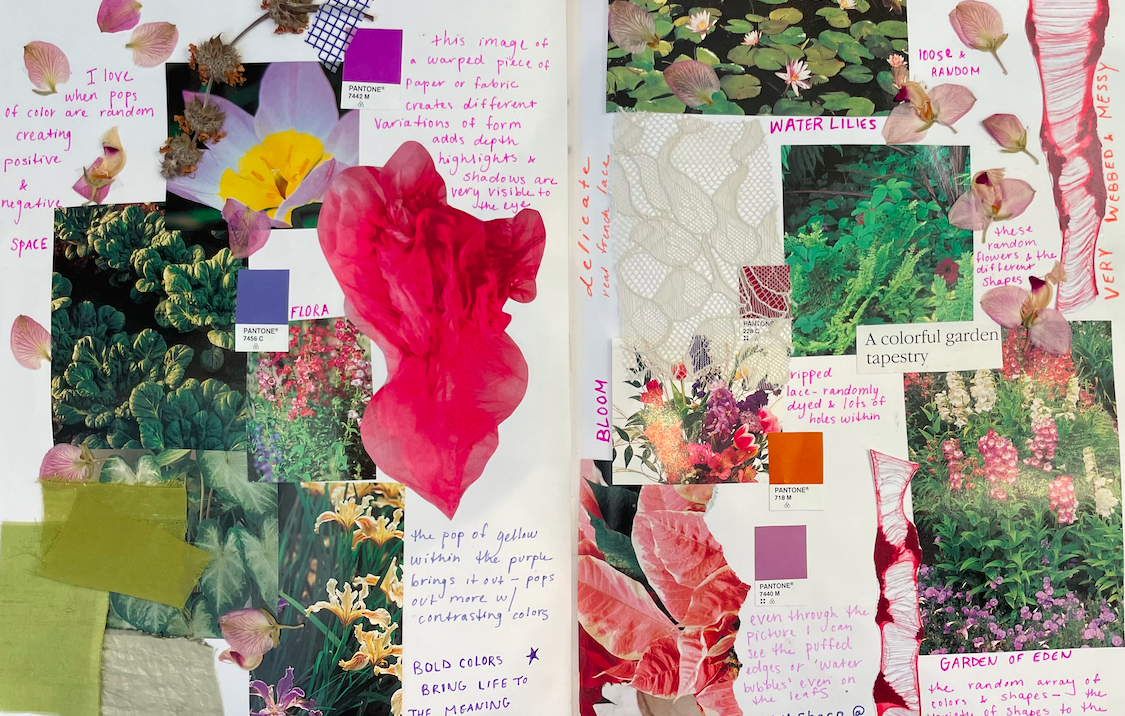 I love
when pops
of color are random
creating
positive
&
negative
SPACE
PANTONE®
7442 M
this image of
a warped piece of
paper or fabric
creates different
variations of form
adds depth
highlights &
shadows are
very visible to
the eye
PANTONE®
7456 C
FLORA
the pop of yellow
within the purple
brings it out – pops
out more w/
contrasting colors
BOLD COLORS
BRING LIFE TO
THE MEANING
WATER LILIES
loose &
RANDOM
VERY WEBBED & MESSY
delicate
real french lace
these
random
flowers & the
different
shapes
PANTONE®
228 C
A colorful garden
tapestry
BLOOM
ripped
lace – randomly
dyed & lots of
holes within
PANTONE®
718 M
PANTONE®
7440 M
even through the
picture I can
see the puffed
edges or 'water
bubbles' even on
the leafs
GARDEN OF EDEN
the random array of
colors & shapes – the
variety of shapes to the